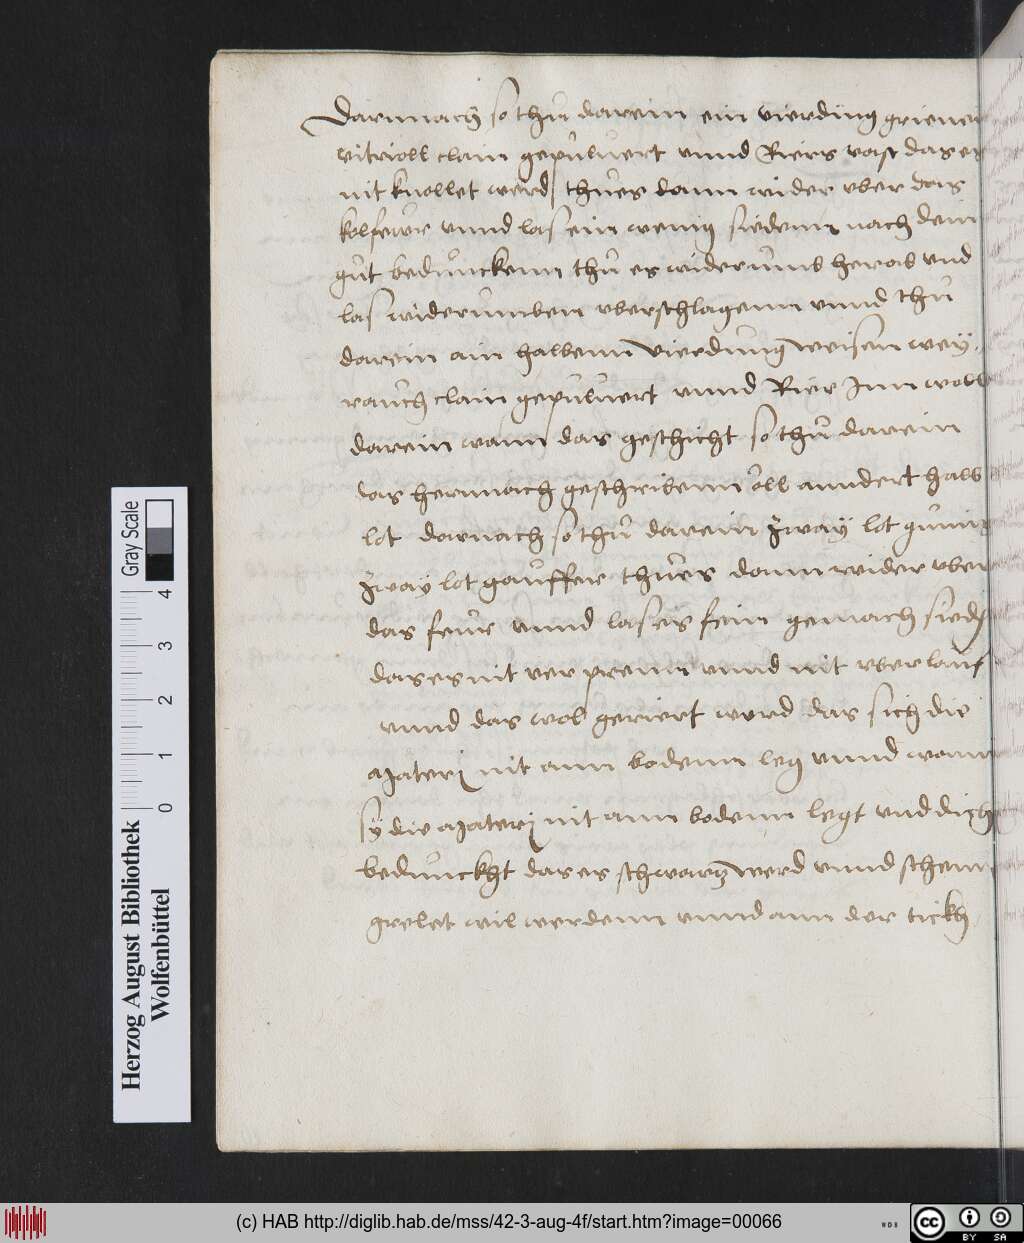 Darnnach so thů darein ein vierding griener
vitrioll clain gepulvert vnnd Riers vast das es
nit knollet werd thůes dann wider vber das
kolfewr vnnd las ein wenig siedenn nach dein
gůt bedunckenn thů es widerumb herab vnd
las widerumben vberschlagenn vnnd thů
darein ain halbenn vierdung weisen wey,
rauch clain gepulvert vnnd Rier Inn woll
darein wann das geschicht so thů darein
das hernnach geschribenn öll anndert halb
lot darnach so thů darein Zway lot gumi
Zway lot gauffer thůes dann wider vber
das feur vnnd las es fein gemach sieden
das es nit verprenn vnnd nit vberlauf
vnnd das wol geriert werd das sich die
Materj nit ann bodenn leg vnnd wann
sÿ die Materj nit ann bodenn legt vnd dich
bedunckht das es schwartz werd vnnd schein
grelet wil werdenn vnnd ann der tickh
Herzog August Bibliothek
Wolfenbüttel
Gray Scale
0 1 2 3 4
(c) HAB http://diglib.hab.de/mss/42-3-aug-4f/start.htm?image=00066
WDB
cc BY SA